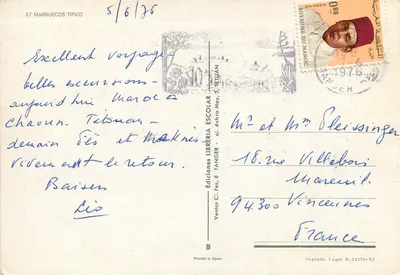 57 MARRUECOS TIPICO
5/6/76
Excellent voyage
belles excursions -
aujourd'hui
Chaouen. Tétouan -
demain Fès et Meknès
Vivement le retour.
Baisers
Léo
Ediciones LIBRERIA ESCOLAR - c/. Achra May, 5. TETUAN
Ventas C/. Fez, 8 TANGER -
Printed in Spain
ROYAUME DU MAROC
0,40
1976
Mr et Mme Pleissinger
18 rue Villebois
Mareuil
94300 Vincennes
France
Depósito Legal B. 21379-XI